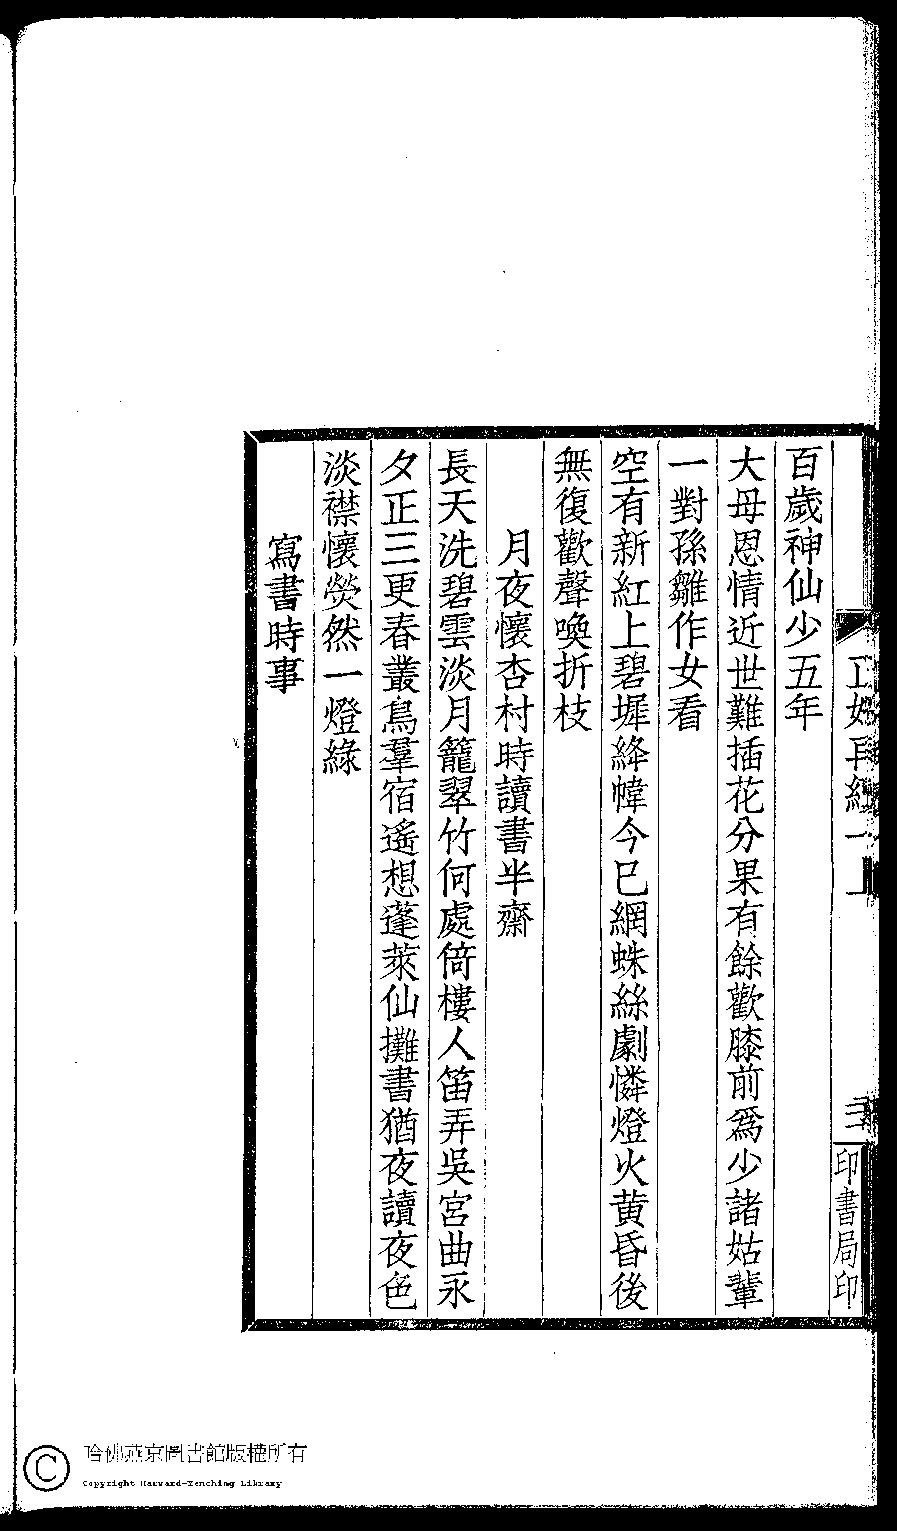 百歲神仙少五年
大母恩情近世難插花分果有餘歡膝前爲少諸姑輩
一對孫雛作女看
空有新紅上碧墀絳幃今已網蛛絲劇憐燈火黃昏後
無復歡聲喚折枝
月夜懷杏村時讀書半齋
長天洗碧雲淡月籠翠竹何處倚樓人笛弄吳宮曲永
夕正三更春叢鳥羣宿遙想蓬萊仙攤書猶夜讀夜色
淡襟懷熒然一燈綠
寫書時事
印書局印
哈佛燕京圖書館版權所有
Copyright Harvard-Yenching Library